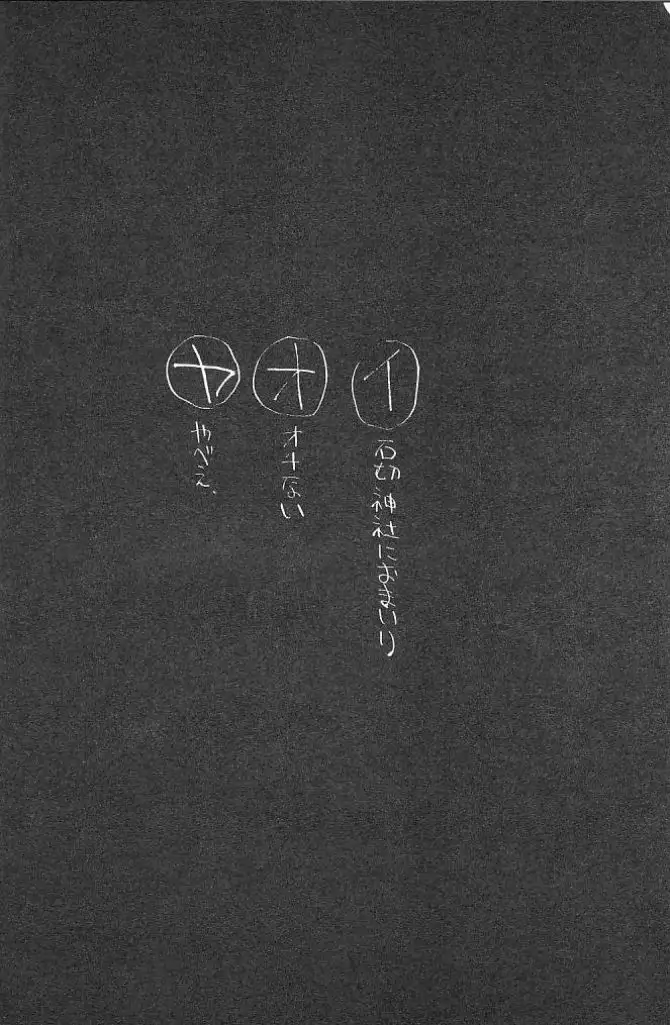 イ 石切神社におまいり
オ オナない
ヤ やべえ、